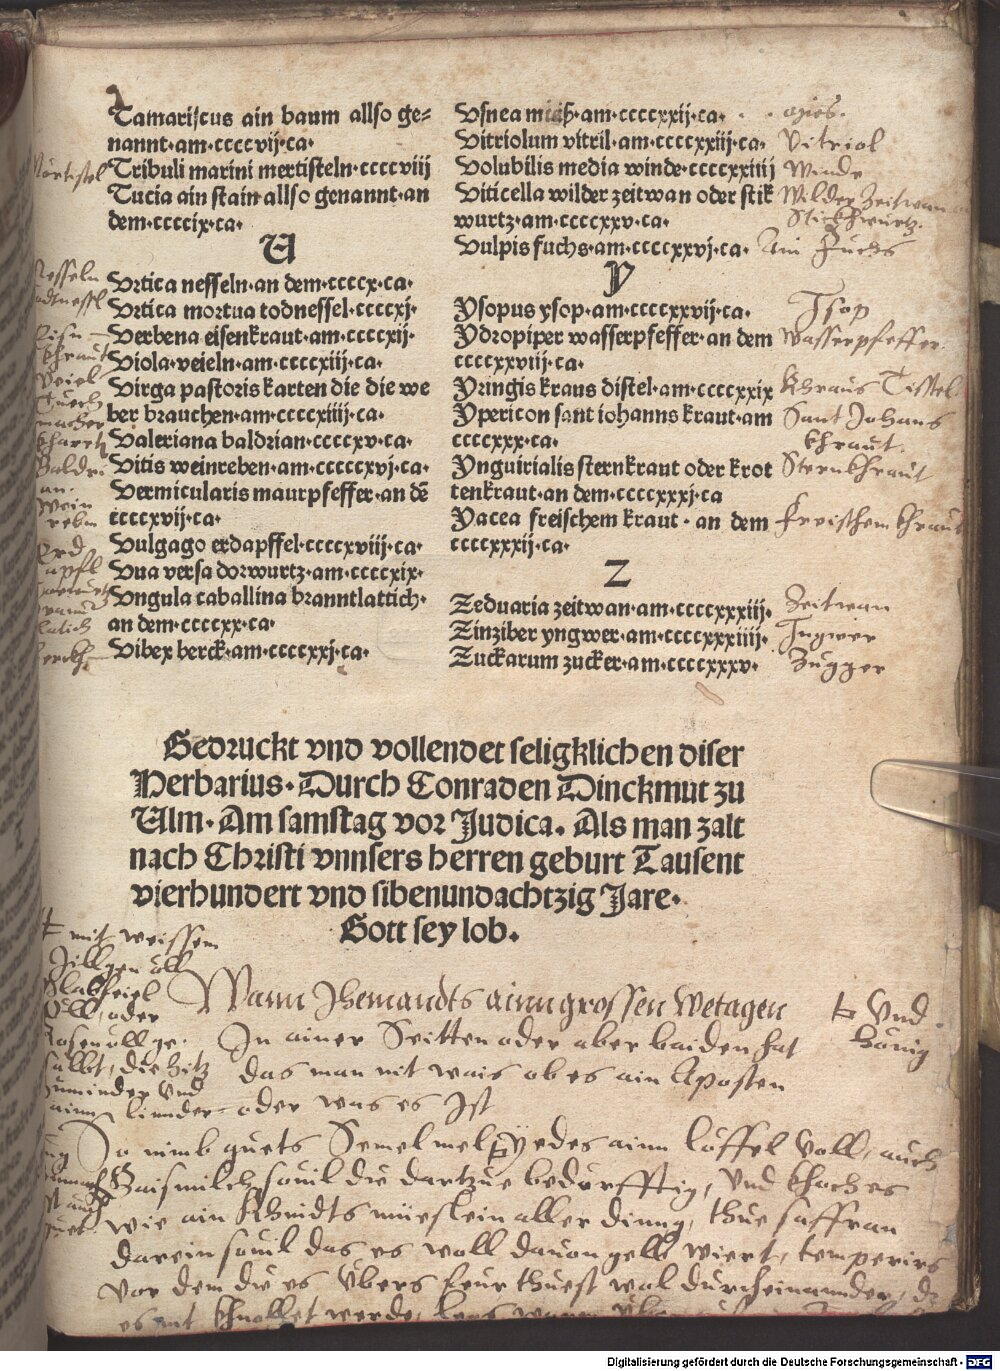 Tamariscus ain baum allso ge⸗
nannt·am·ccccvij·ca·
Tribuli marini mertisteln·ccccviij
Tucia ain stain allso genannt·an
dem·ccccix·ca·
U
Vrtica nesseln·an dem·ccccx·ca·
Vrtica mortua todnessel·ccccxj·
Verbena eisenkraut·am·ccccxij·
Viola·veieln·am·ccccxiij·ca·
Virga pastoris karten die die we
ber brauchen·am·ccccxiiij·ca·
Valeriana baldrian·ccccxv·ca·
Vitis weinreben·am·ccccxvj·ca·
Vermicularis maurpfeffer·an dē
ccccxvij·ca·
Vulgago erdapffel·ccccxviij·ca·
Vua versa dorwurtz·am·ccccxix·
Vngula caballina branntlattich·
an dem·ccccxx·ca·
Vibex berck·am·ccccxxj·ca·
Mörtistel
Nesseln
Eisn
khraut
Veiel
Tuech
macher
khartn
Baldri
an·
Wein
rebm
Erd
apfl
latich
Vsnea ·am·ccccxxij·ca·
Vitriolum vitril·am·ccccxxiij·ca·
Volubilis media winde·ccccxxiiij
Viticella wilder zeitwan oder stik
wurtz·am·ccccxxv·ca·
Vulpis fuchs·am·ccccxxvj·ca·
Y
Ysopus ysop·am·ccccxxvij·ca·
Ydropiper wasserpfeffer·an dem
ccccxxviij·ca·
Yringis kraus distel·am·ccccxxix
Ypericon sant iohanns kraut·am
ccccxxx·ca·
Ynguirialis sternkraut oder krot
tenkraut·an dem·ccccxxxj·ca
Yacea freischem kraut·an dem
ccccxxxij·ca·
Z
Zeduaria zeitwan·am·ccccxxxiij·
Zinziber yngwer·am·ccccxxxiiij·
Zuckarum zucker·am·ccccxxxv·
Vitriol
Winde
Wilder Zeitwan
Stickhwurtz·
Ain Fuchs
Isop
Wasserpfeffer·
Khraus Tisstel
Sant Johans
khraut·
Sternkhraut
freischem khraut
Zeitwan
Ingwer
Zugger
Gedruckt vnd vollendet seligklichen diser
Herbarius·Durch Conraden Dinckmut zu
Ulm·Am samstag vor Judica·Als man zalt
nach Christi vnnsers herren geburt Tausent
vierhundert vnd sibenundachtzig Jare·
Gott sey lob·
mit weissem
Gillgen öll
öll, oder
Rosenöll ge·
salbt, die hitz
Vnd
Vnd
hönig
Wann Jhemandts ainn grossen Wetagen
In ainer Seitten oder aber baiden hat
das man nit wais ob es ain Aposten
oder was es Ist
So nimb guets Semelmel yedes ainn löffel voll, auch
Gaismilch souil die dartzue bedürfftig, Vnd khoch es
wie ain Khindts müeslein aller dinng, thue saffran
darein souil das es woll dauon gelb wiert, temperirs
Vor dem die es Vbers feur thuest wol durcheinannder,
es nit werde
Digitalisierung gefördert durch die Deutsche Forschungsgemeinschaft - DFG